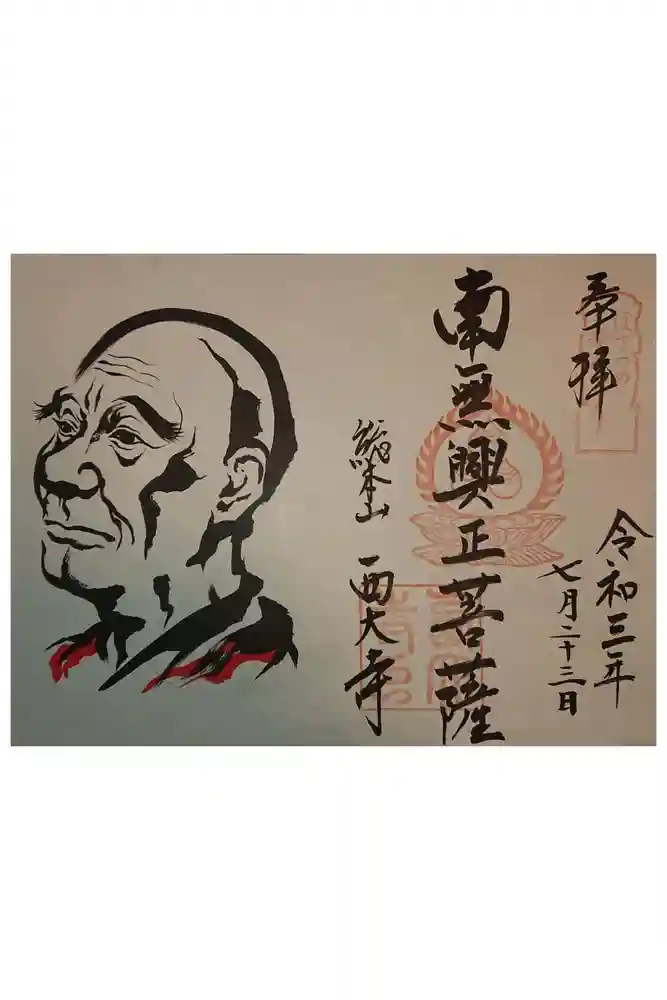 奉拝
令和三年
七月二十三日
南無興正菩薩
総本山 西大寺